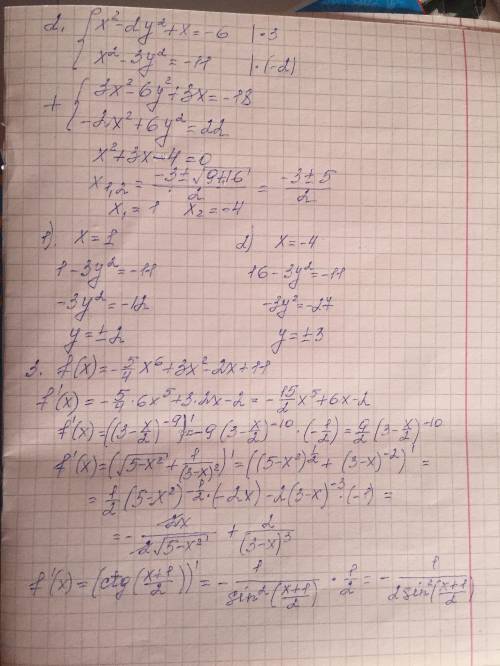 2. { x² - 2y² + x = -6 | · 3
x² - 3y² = -11 | · (-2)
+ { 3x² - 6y² + 3x = -18
-2x² + 6y² = 22
x² + 3x - 4 = 0
x₁,₂ = (-3 ± √(9+16))/2 = (-3 ± 5)/2
x₁ = 1 x₂ = -4
1). x = 1 2) x = -4
1 - 3y² = -11 16 - 3y² = -11
-3y² = -12 -3y² = -27
y = ±2 y = ±3
3. f(x) = -5/4 x⁶ + 3x² - 2x + 11
f'(x) = -5/4 · 6x⁵ + 3 · 2x - 2 = -15/2 x⁵ + 6x - 2
f'(x) = ((3 - x/2)⁻⁹)' = -9(3 - x/2)⁻¹⁰ · (-1/2) = 9/2 (3 - x/2)⁻¹⁰
f'(x) = (√(5-x²) + 1/(3-x)²)' = ((5-x²)^(1/2) + (3-x)⁻²)' =
= 1/2 (5-x²)^(-1/2) · (-2x) - 2(3-x)⁻³ · (-1) =
= - 2x/(2√(5-x²)) + 2/(3-x)³
f'(x) = (ctg((x+1)/2))' = - 1/(sin²((x+1)/2)) · 1/2 = - 1/(2sin²((x+1)/2))